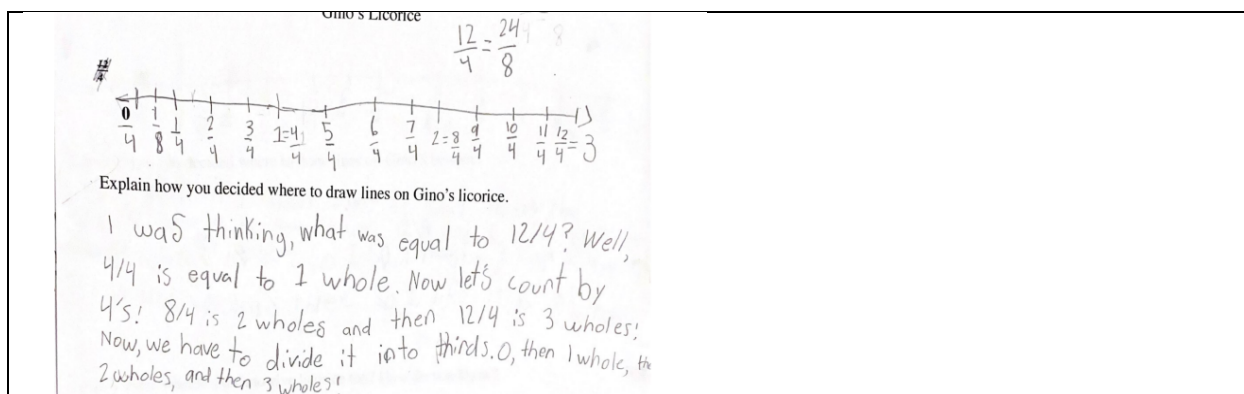 Gino's Licorice
12/4 = 24/8
0/4 1/8 1/4 2/4 3/4 1=4/4 5/4 6/4 7/4 2=8/4 9/4 10/4 11/4 12/4=3
Explain how you decided where to draw lines on Gino's licorice.
I was thinking, what was equal to 12/4? Well,
4/4 is equal to 1 whole. Now let's count by
4's! 8/4 is 2 wholes and then 12/4 is 3 wholes!
Now, we have to divide it into thirds. 0, then 1 whole, the
2 wholes, and then 3 wholes!